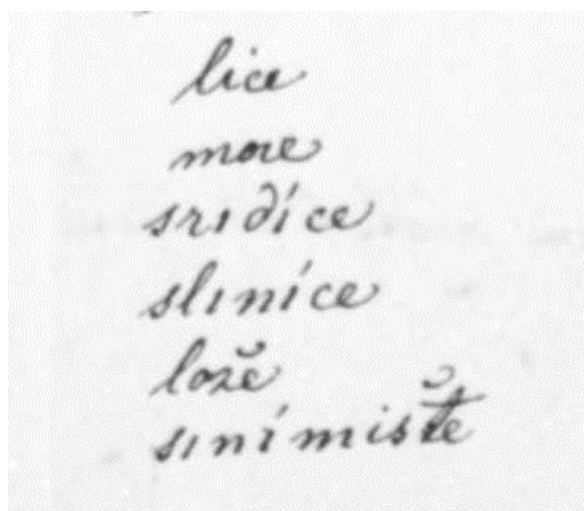 lice
more
srıdíce
slıníce
lože
sınímište